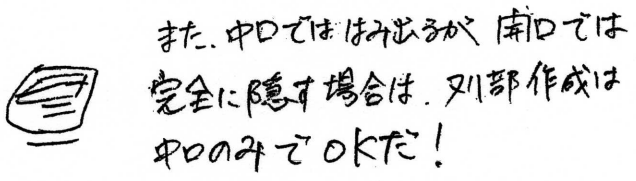 また、中口でははみ出るが 閉口では
完全に隠す場合は、別部作成は
中口のみでOKだ！